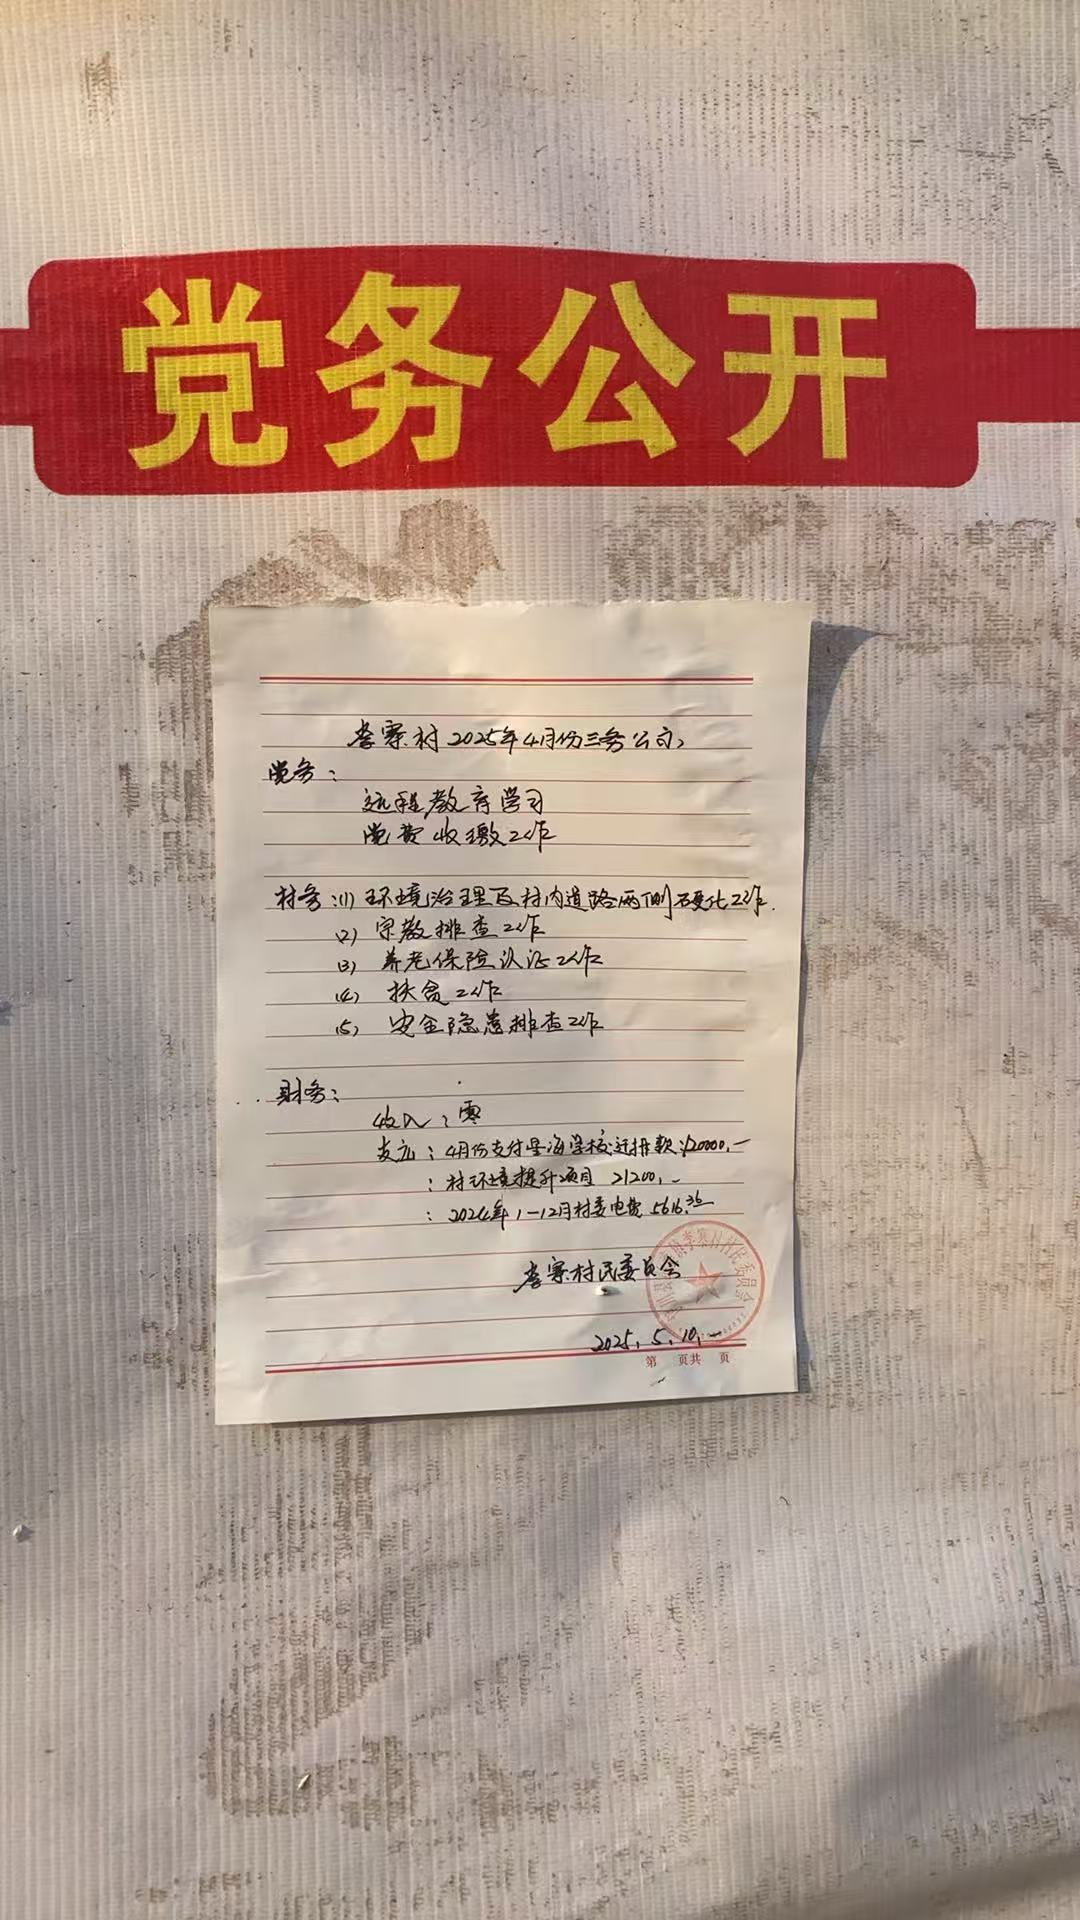 党务公开
李寨村2025年4月份三务公示
党务：
远程教育学习
党费收缴工作
村务：(1) 环境治理及村内道路两侧硬化工作.
(2) 宗教排查工作
(3) 养老保险认证工作
(4) 扶贫工作
(5) 安全隐患排查工作
财务：
收入：零
支出：4月份支付星海学校迁拆款：120000.—
：村环境提升项目 21200.—
：2024年1—12月村委电费 5616.36
李寨村民委员会
李寨村村民委员会
2025.5.10.—
第 页共 页